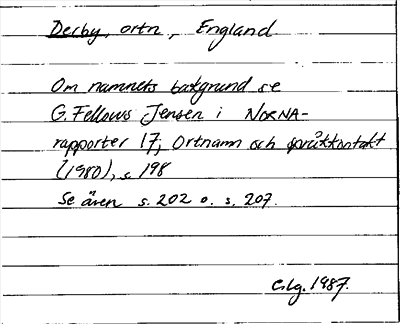 Derby, ortn, England
Om namnets bakgrund se
G. Fellows Jensen i NORNA-
rapporter 17, Ortnamn och språkkontakt
(1980), s. 198
Se även s. 202 o. s. 207.
Clg. 1987.